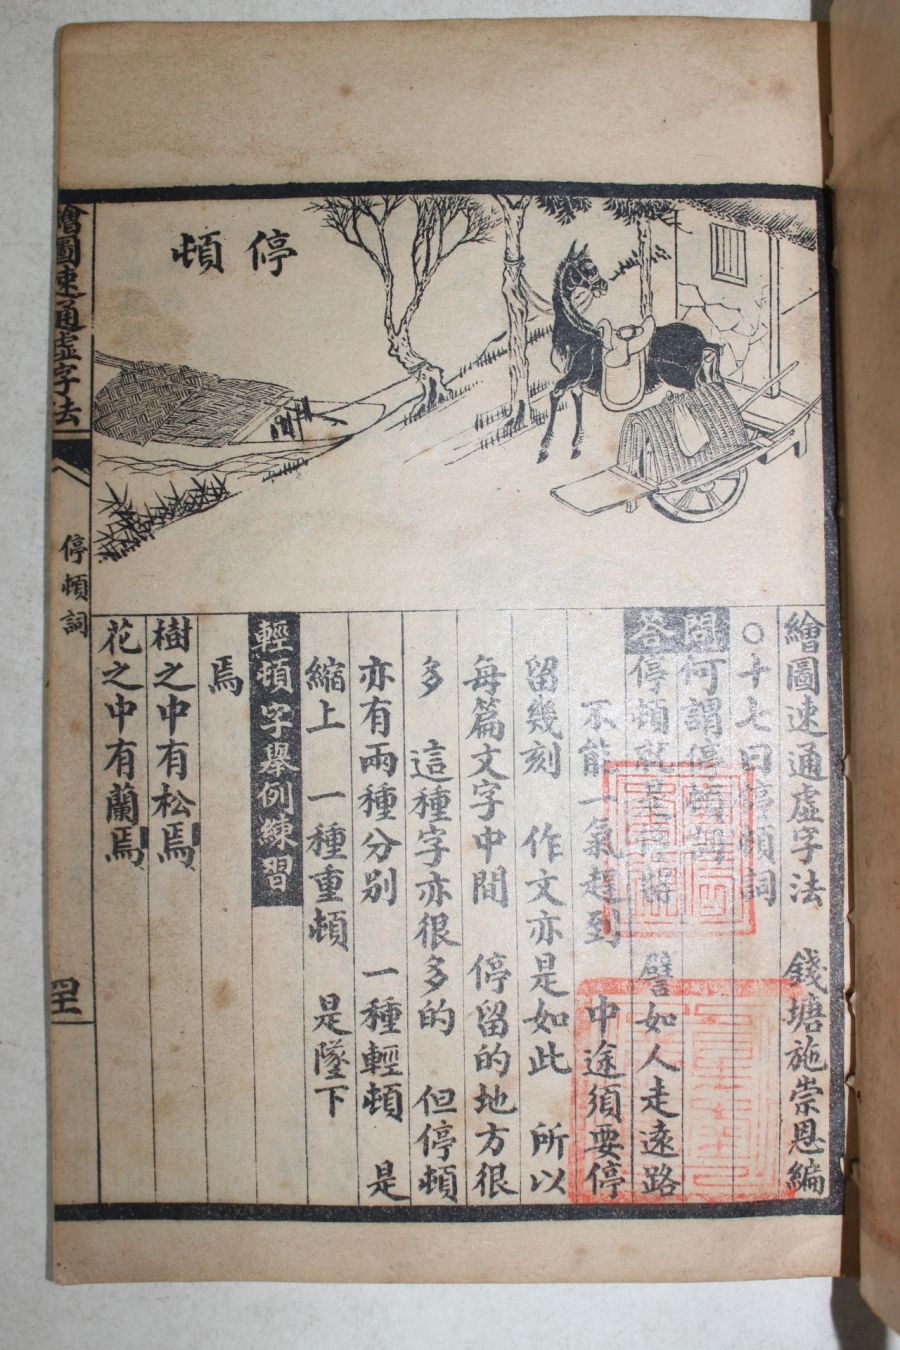 停頓
繪圖速通虛字法　錢塘施崇恩編
○十七曰停頓詞
問何謂停頓詞
答停頓就　譬如人走遠路
不能一氣趕到　中途須要停
留幾刻　作文亦是如此　所以
每篇文字中間　停留的地方很
多　這種字亦很多的　但停頓
亦有兩種分別　一種輕頓　是
縮上　一種重頓　是墜下
輕頓字舉例練習
焉
樹之中有松焉
花之中有蘭焉
繪圖速通虛字法
停頓詞